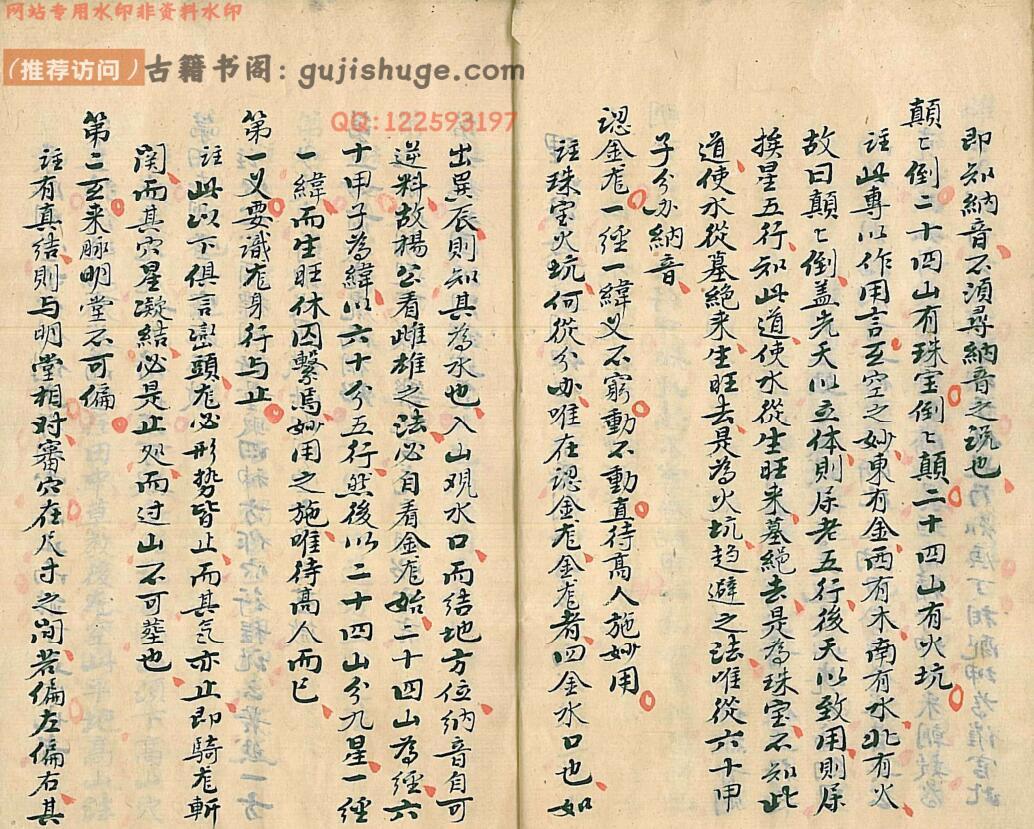 网站专用水印非资料水印
(推荐访问)古籍书阁: gujishuge.com
QQ:122593197
即知納音不須尋納音之说也
顛〻倒二十四山有珠宝倒〻顛二十四山有火坑
註此專以作用言玄空之妙東有金西有木南有水北有火
故曰顛〻倒盖先天以立体則属老五行後天以致用則属
挨星五行知此道使水從生旺来墓絕去是為珠宝不知此
道使水從墓絕来生旺去是為火坑趋避之法唯從六十甲
子分办納音
認金龙一經一緯义不窮動不動直待高人施妙用
註珠宝火坑何從分办唯在認金龙金龙者四金水口也如
出巽辰則知其為水也入山观水口而结地方位納音自可
逆料故楊公看雌雄之法必自看金龙始二十四山為經六
十甲子為緯以六十分五行然後以二十四山分九星一經
一緯而生旺休囚繫焉妙用之施唯待高人而已
第一义要識龙身行与止
註此以下俱言巒頭龙必形势皆止而其气亦止即騎龙斬
関而其穴星凝结必是止处而过山不可葬也
第二言来脉明堂不可偏
註有真结則与明堂相对審穴在尺寸之间若偏左偏右其